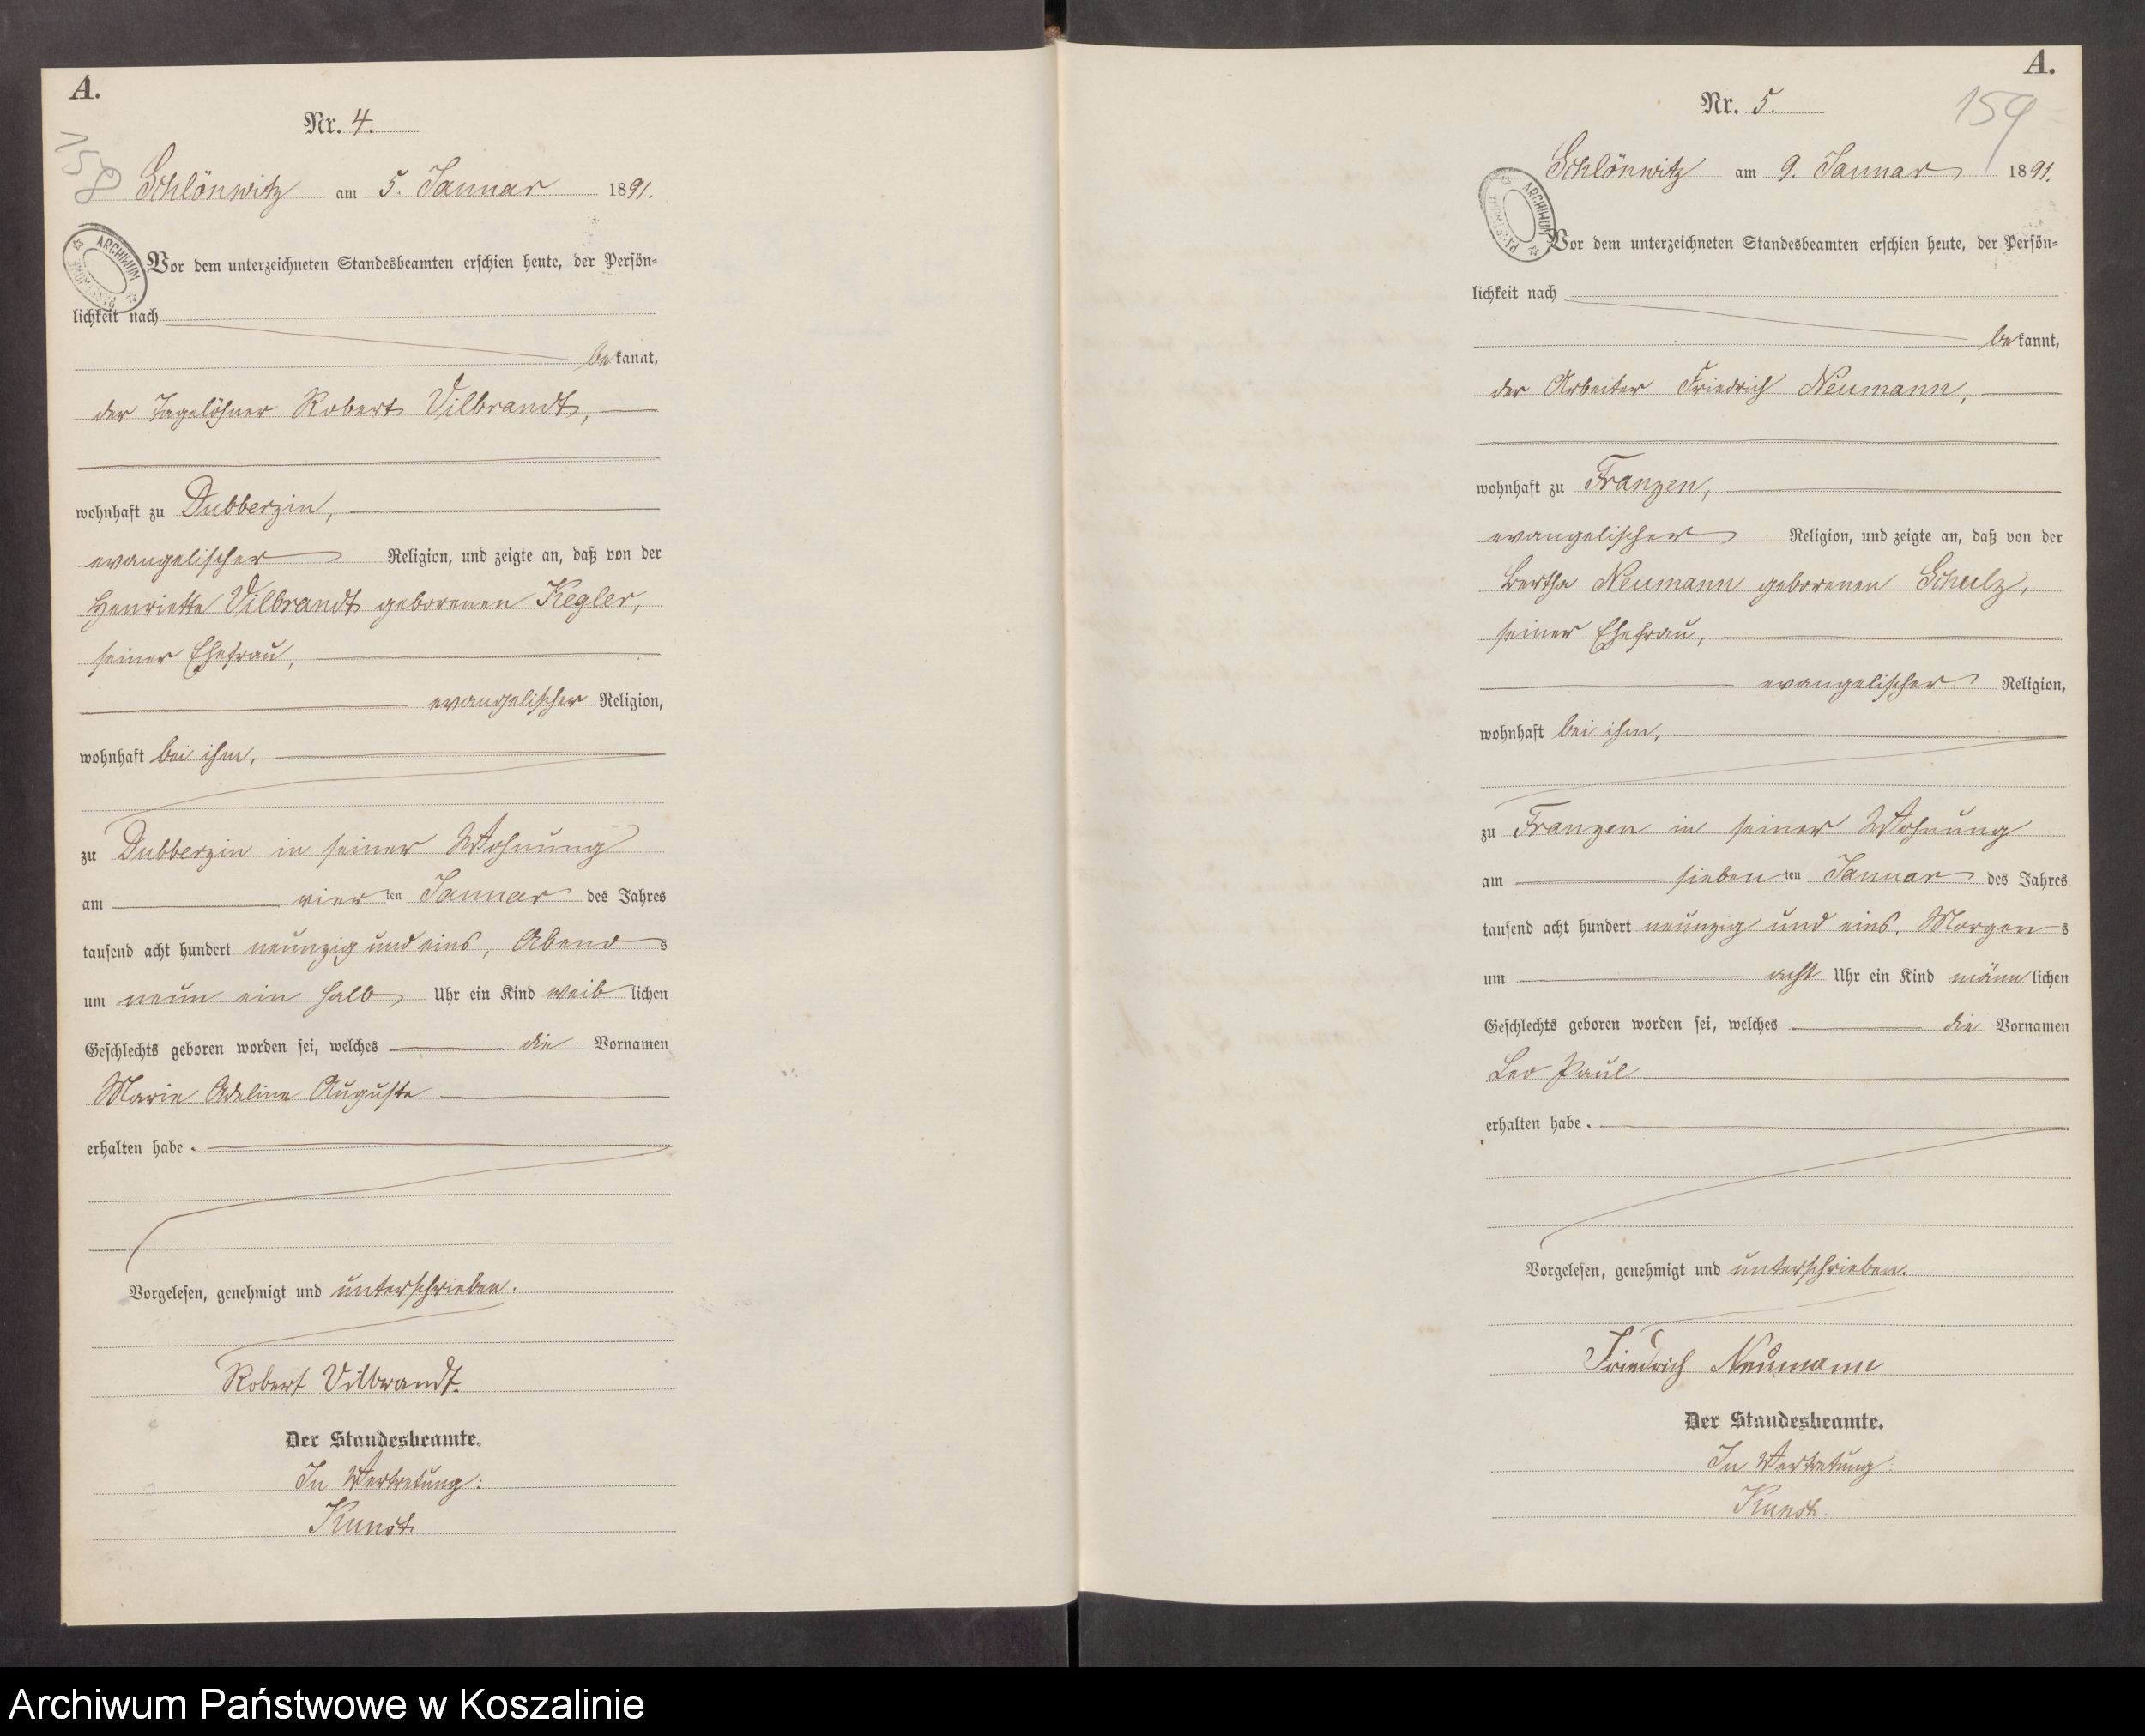 A.
Nr. 4.
158
Schlönwitz am 5. Januar 1891.
ARCHIWUM
Vor dem unterzeichneten Standesbeamten erschien heute, der Persön-
lichkeit nach
bekannt,
der Tagelöhner Robert Vilbrandt,
wohnhaft zu Dubberzin,
evangelischer Religion, und zeigte an, daß von der
Henriette Vilbrandt geborenen Kegler,
seiner Ehefrau,
evangelischer Religion,
wohnhaft bei ihm,
zu Dubberzin in seiner Wohnung
am vierten Januar des Jahres
tausend acht hundert neunzig und eins, Abends
um neun ein halb Uhr ein Kind weiblichen
Geschlechts geboren worden sei, welches die Vornamen
Marie Adeline Auguste
erhalten habe.
Vorgelesen, genehmigt und unterschrieben.
Robert Vilbrandt.
Der Standesbeamte.
In Vertretung:
Kunst
A.
Nr. 5.
159
Schlönwitz am 9. Januar 1891.
ARCHIWUM
Vor dem unterzeichneten Standesbeamten erschien heute, der Persön-
lichkeit nach
bekannt,
der Arbeiter Friedrich Neumann,
wohnhaft zu Franzen,
evangelischer Religion, und zeigte an, daß von der
Bertha Neumann geborenen Schulz,
seiner Ehefrau,
evangelischer Religion,
wohnhaft bei ihm,
zu Franzen in seiner Wohnung
am siebenten Januar des Jahres
tausend acht hundert neunzig und eins, Morgens
um acht Uhr ein Kind männlichen
Geschlechts geboren worden sei, welches die Vornamen
Leo Paul
erhalten habe.
Vorgelesen, genehmigt und unterschrieben.
Friedrich Neumann
Der Standesbeamte.
In Vertretung:
Kunst.
Archiwum Państwowe w Koszalinie